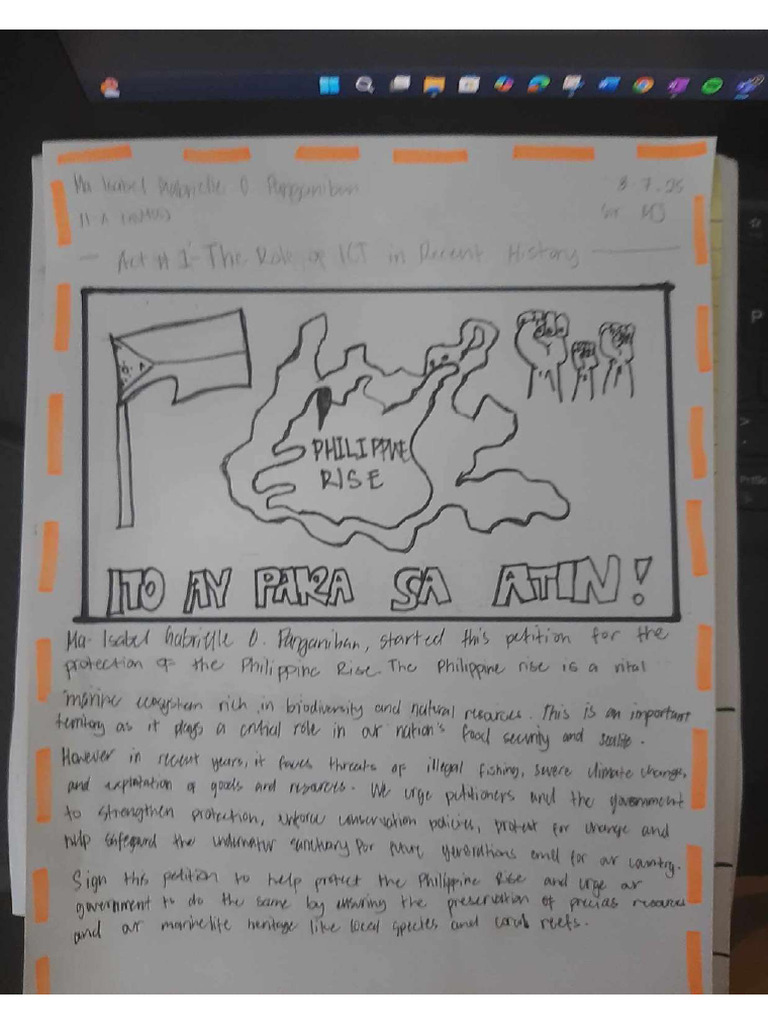 Ma Isabel Gabrielle O. Panganiban 3.7.25
11-A Sir
Act # 1 - The Role of ICT in Recent History
PHILIPPINE
RISE
ITO AY PARA SA ATIN!
Ma. Isabel Gabrielle O. Panganiban, started this petition for the
protection of the Philippine Rise. The Philippine rise is a vital
marine ecosystem rich in biodiversity and natural resources. This is an important
territory as it plays a critical role in our nation's food security and sealife.
However in recent years, it faces threats of illegal fishing, severe climate changes,
and exploitation of goods and resources. We urge petitioners and the government
to strengthen protection, enforce conservation policies, protest for change and
help safeguard the underwater sanctuary for future generations and for our country.
Sign this petition to help protect the Philippine Rise and urge our
government to do the same by ensuring the preservation of precious resources
and our marinelife heritage like local species and coral reefs.
P
PrtSc